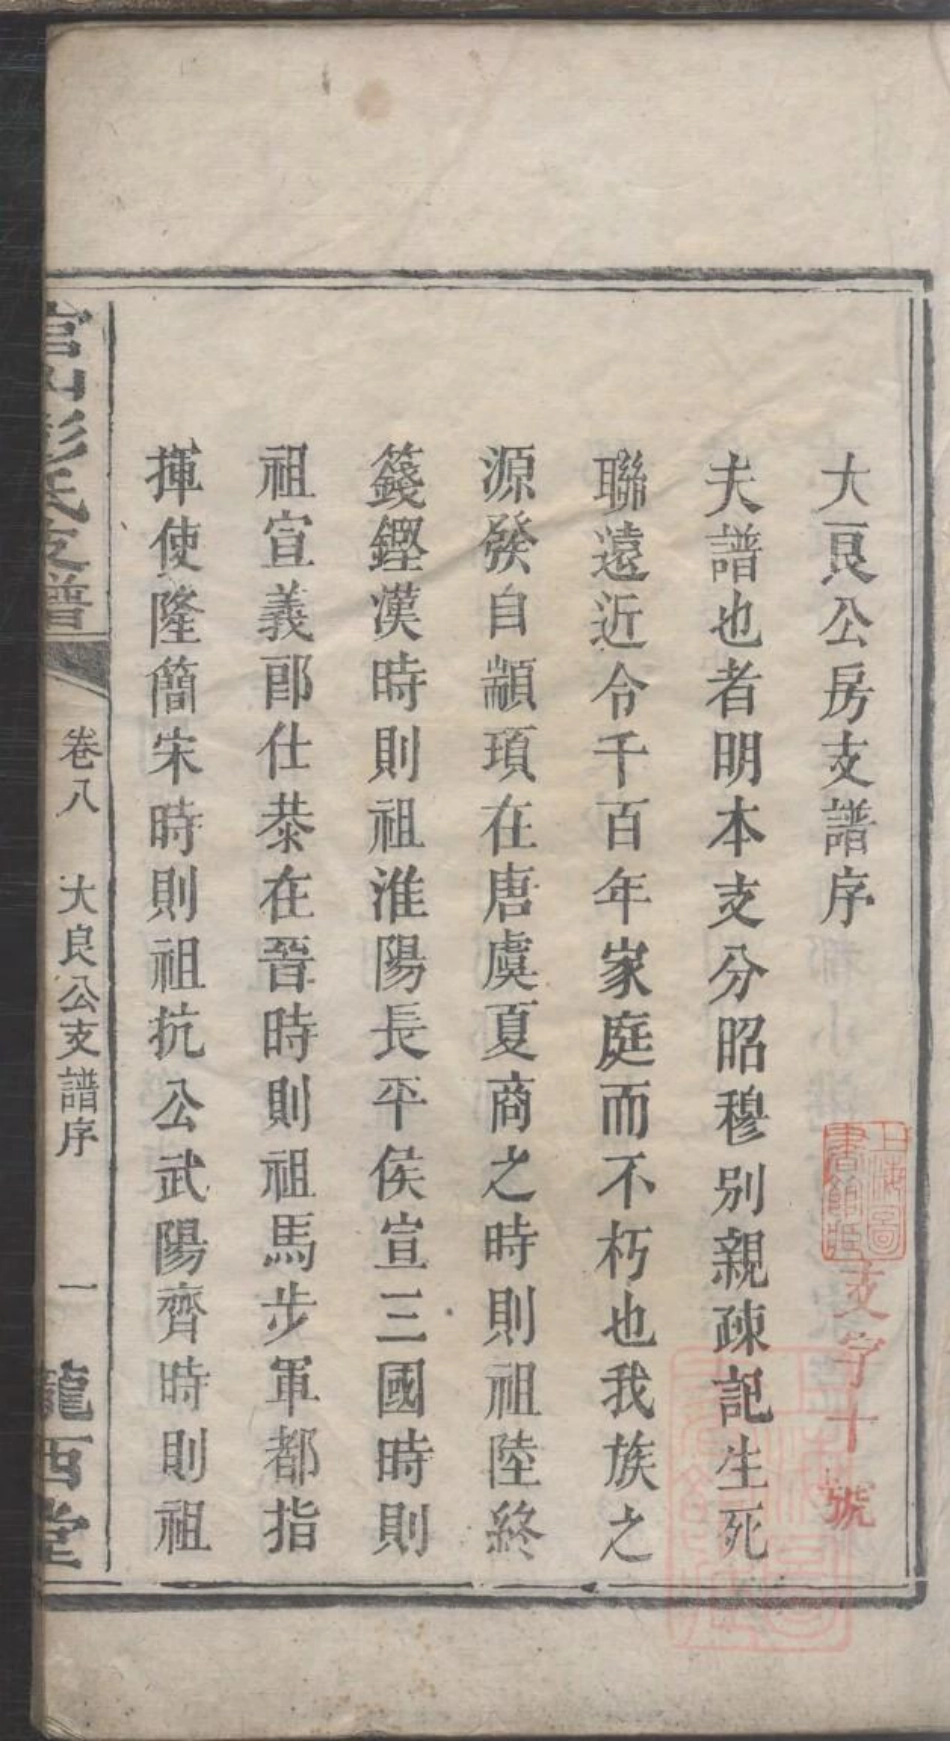 大良公房支譜序
夫譜也者明本支分昭穆別親疎記生死
聯遠近令千百年家庭而不朽也我族之
源發自顓頊在唐虞夏商之時則祖陸終
籛鏗漢時則祖淮陽長平侯宣三國時則
祖宣義郎仕恭在晉時則祖馬步軍都指
揮使隆簡宋時則祖抗公武陽齊時則祖
官山彭氏支譜
卷八
大良公支譜序
一
隴西堂
上海圖
書館藏
支字十號